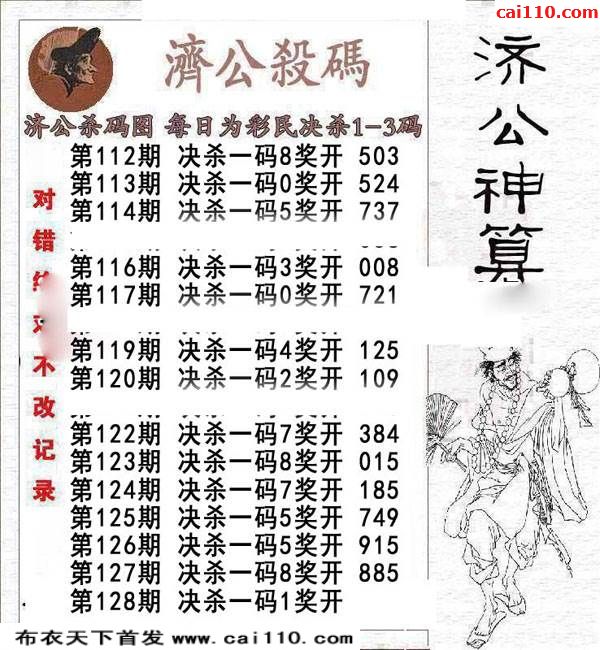 cai110.com
濟公殺碼
济公杀码图 每日为彩民决杀1-3码
第112期 决杀一码8奖开 503
第113期 决杀一码0奖开 524
第114期 决杀一码5奖开 737
第116期 决杀一码3奖开 008
第117期 决杀一码0奖开 721
第119期 决杀一码4奖开 125
第120期 决杀一码2奖开 109
第122期 决杀一码7奖开 384
第123期 决杀一码8奖开 015
第124期 决杀一码7奖开 185
第125期 决杀一码5奖开 749
第126期 决杀一码5奖开 915
第127期 决杀一码8奖开 885
第128期 决杀一码1奖开
对错
不改记录
济公神算
布衣天下首发 www.cai110.com